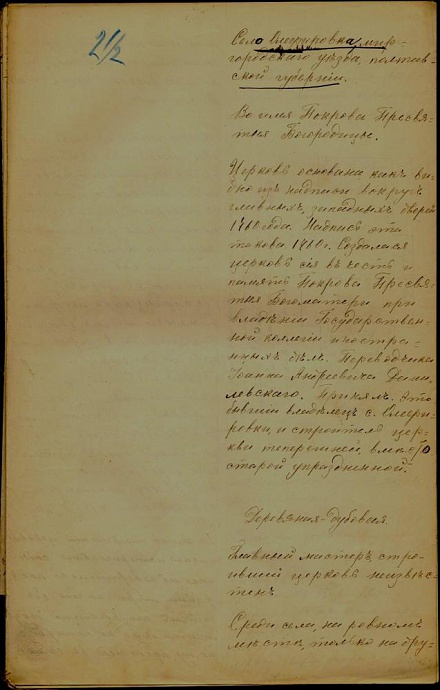 2½
Село Смутровка, мир-
городскаго уѣзда, полтав-
ской губерніи.
Во имя Покрова Пресвя-
тыя Богородицы.
Церковь основана какъ ви-
дно изъ надписи вокругъ
главныхъ, западныхъ дверей
1760 года. Надпись эта
такова 1760 г. Создалася
церковь сія въ честь и
память Покрова Пресвя-
тыя Богоматери при
владѣніи Государствен-
ной коллегіи иностра-
нныхъ дѣлъ. Переводчика
Іоанна Андреевича Дани-
левскаго. Примѣч. Это
бывшій владѣлецъ с.
и строитель цер-
кви теперешней, вмѣсто
старой упраздненной.
Деревянная-дубовая.
Главный мастеръ, стро-
ившій церковь неизвѣс-
тенъ.
Среди села, на ровномъ
мѣстѣ, только на дру-